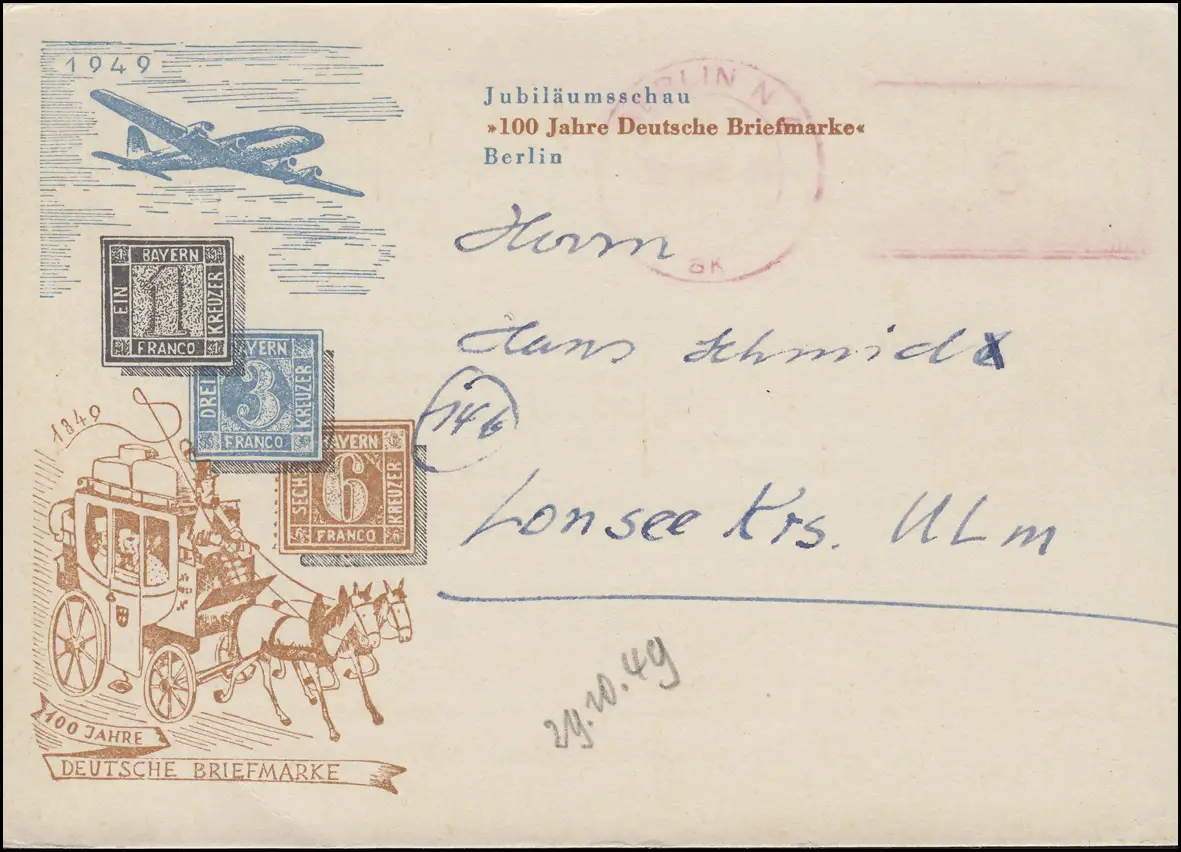 1949
Jubiläumsschau
»100 Jahre Deutsche Briefmarke«
Berlin
BERLIN N
8K
Herrn
Hans Schmid
14b
Lonsee Krs. Ulm
29.10.49
BAYERN
EIN
1
KREUZER
FRANCO
YERN
DREI
3
KREUZER
FRANCO
BAYERN
SECHS
6
KREUZER
FRANCO
1849
100 JAHRE
DEUTSCHE BRIEFMARKE